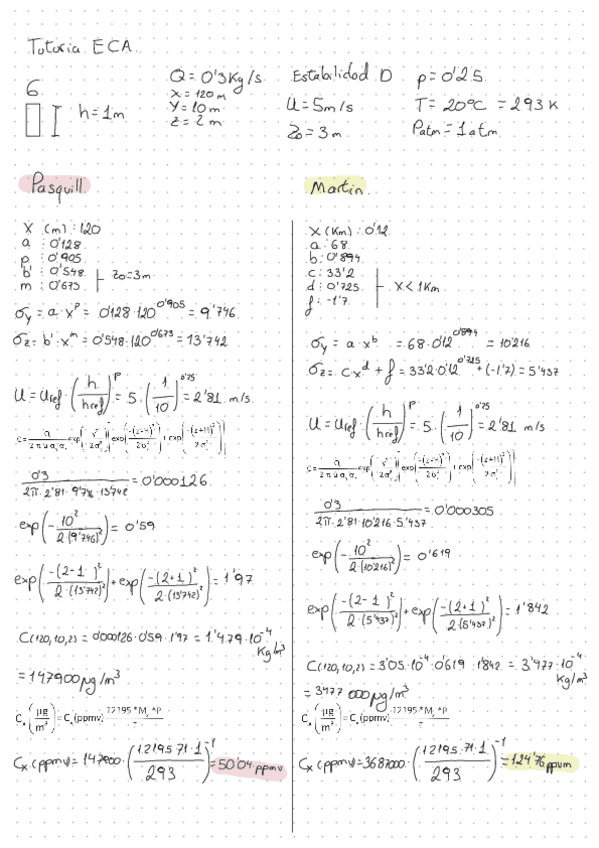 Tutoria ECA.
6
h = 1m
Q = 0'3 Kg/s
X = 120 m
Y = 10 m
Z = 2 m
Estabilidad D
U = 5 m/s
Zo = 3 m
p = 0'25
T = 20°C = 293 K
Patm = 1 atm
Pasquill
X (m) : 120
a : 0'128
p : 0'905
b' : 0'548
m : 0'673
Zo = 3m
σy = a · x^p = 0'128 · 120^0'905 = 9'746
σz = b' · x^m = 0'548 · 120^0'673 = 13'742
U = Uref · (h/href)^p = 5 · (1/10)^0'25 = 2'81 m/s.
0'3 / (2π · 2'81 · 9'746 · 13'742) = 0'000126
exp(-10²/(2·(9'746)²)) = 0'59
exp(-(2-1)²/(2·(13'742)²)) + exp(-(2+1)²/(2·(13'742)²)) = 1'97
C(120,10,2) = 0'000126 · 0'59 · 1'97 = 1'479 · 10^-4 Kg/m³
= 147900 μg/m³
Cx (μg/m³) = Cx (ppmv)
Cx (ppmv) = 147900 · (12195·71·1/293)^-1 = 50'04 ppmv
Martin
X (Km) : 0'12
a : 68
b : 0'894
c : 33'2
d : 0'725
f : -1'7
X < 1 Km
σy = a · x^b = 68 · 0'12^0'894 = 10'216
σz = c x^d + f = 33'2 · 0'12^0'725 + (-1'7) = 5'437
U = Uref · (h/href)^p = 5 · (1/10)^0'25 = 2'81 m/s
0'3 / (2π · 2'81 · 10'216 · 5'437) = 0'000305
exp(-10²/(2·(10'216)²)) = 0'619
exp(-(2-1)²/(2·(5'437)²)) + exp(-(2+1)²/(2·(5'437)²)) = 1'842
C(120,10,2) = 3'05 · 10^-4 · 0'619 · 1'842 = 3'477 · 10^-4 Kg/m³
= 3477 000 μg/m³
Cx (μg/m³) = Cx (ppmv)
Cx (ppmv) = 3687000 · (12195·71·1/293)^-1 = 124'76 ppvm